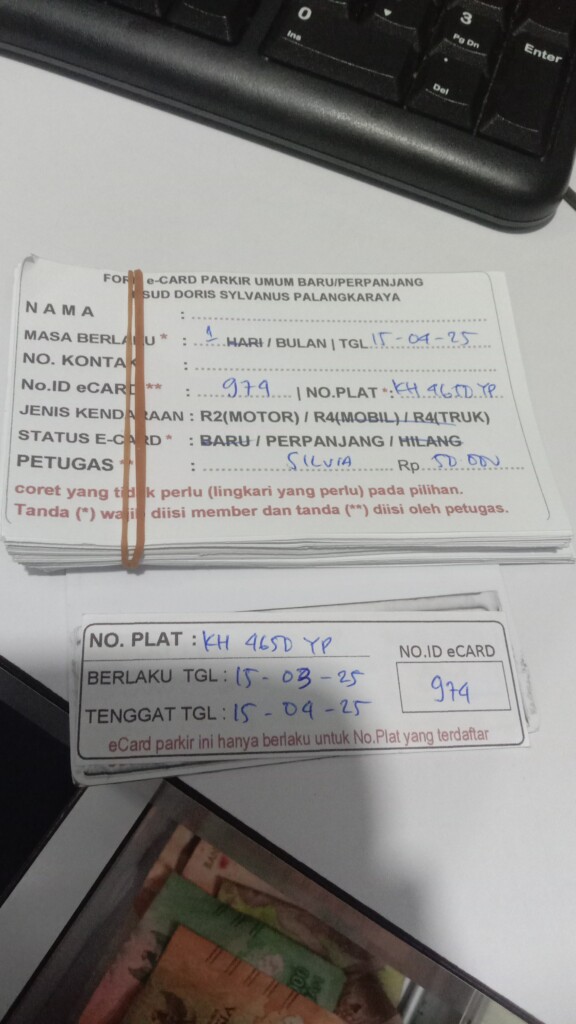 0
Ins
3
Pg Dn
Enter
.
Del
FOR e-CARD PARKIR UMUM BARU/PERPANJANG
SUD DORIS SYLVANUS PALANGKARAYA
NAMA :
MASA BERLAKU * : 1 HARI / BULAN | TGL 15-04-25
NO. KONTAK :
No.ID eCARD ** : 974 | NO.PLAT *: KH 4650 YP
JENIS KENDARAAN : R2(MOTOR) / R4(MOBIL) / R4(TRUK)
STATUS E-CARD * : BARU / PERPANJANG / HILANG
PETUGAS : SILVIA Rp. 50 000
coret yang tidak perlu (lingkari yang perlu) pada pilihan.
Tanda (*) wajib diisi member dan tanda (**) diisi oleh petugas.
NO. PLAT : KH 4650 YP
NO.ID eCARD
BERLAKU TGL : 15-03-25
974
TENGGAT TGL : 15-04-25
eCard parkir ini hanya berlaku untuk No.Plat yang terdaftar